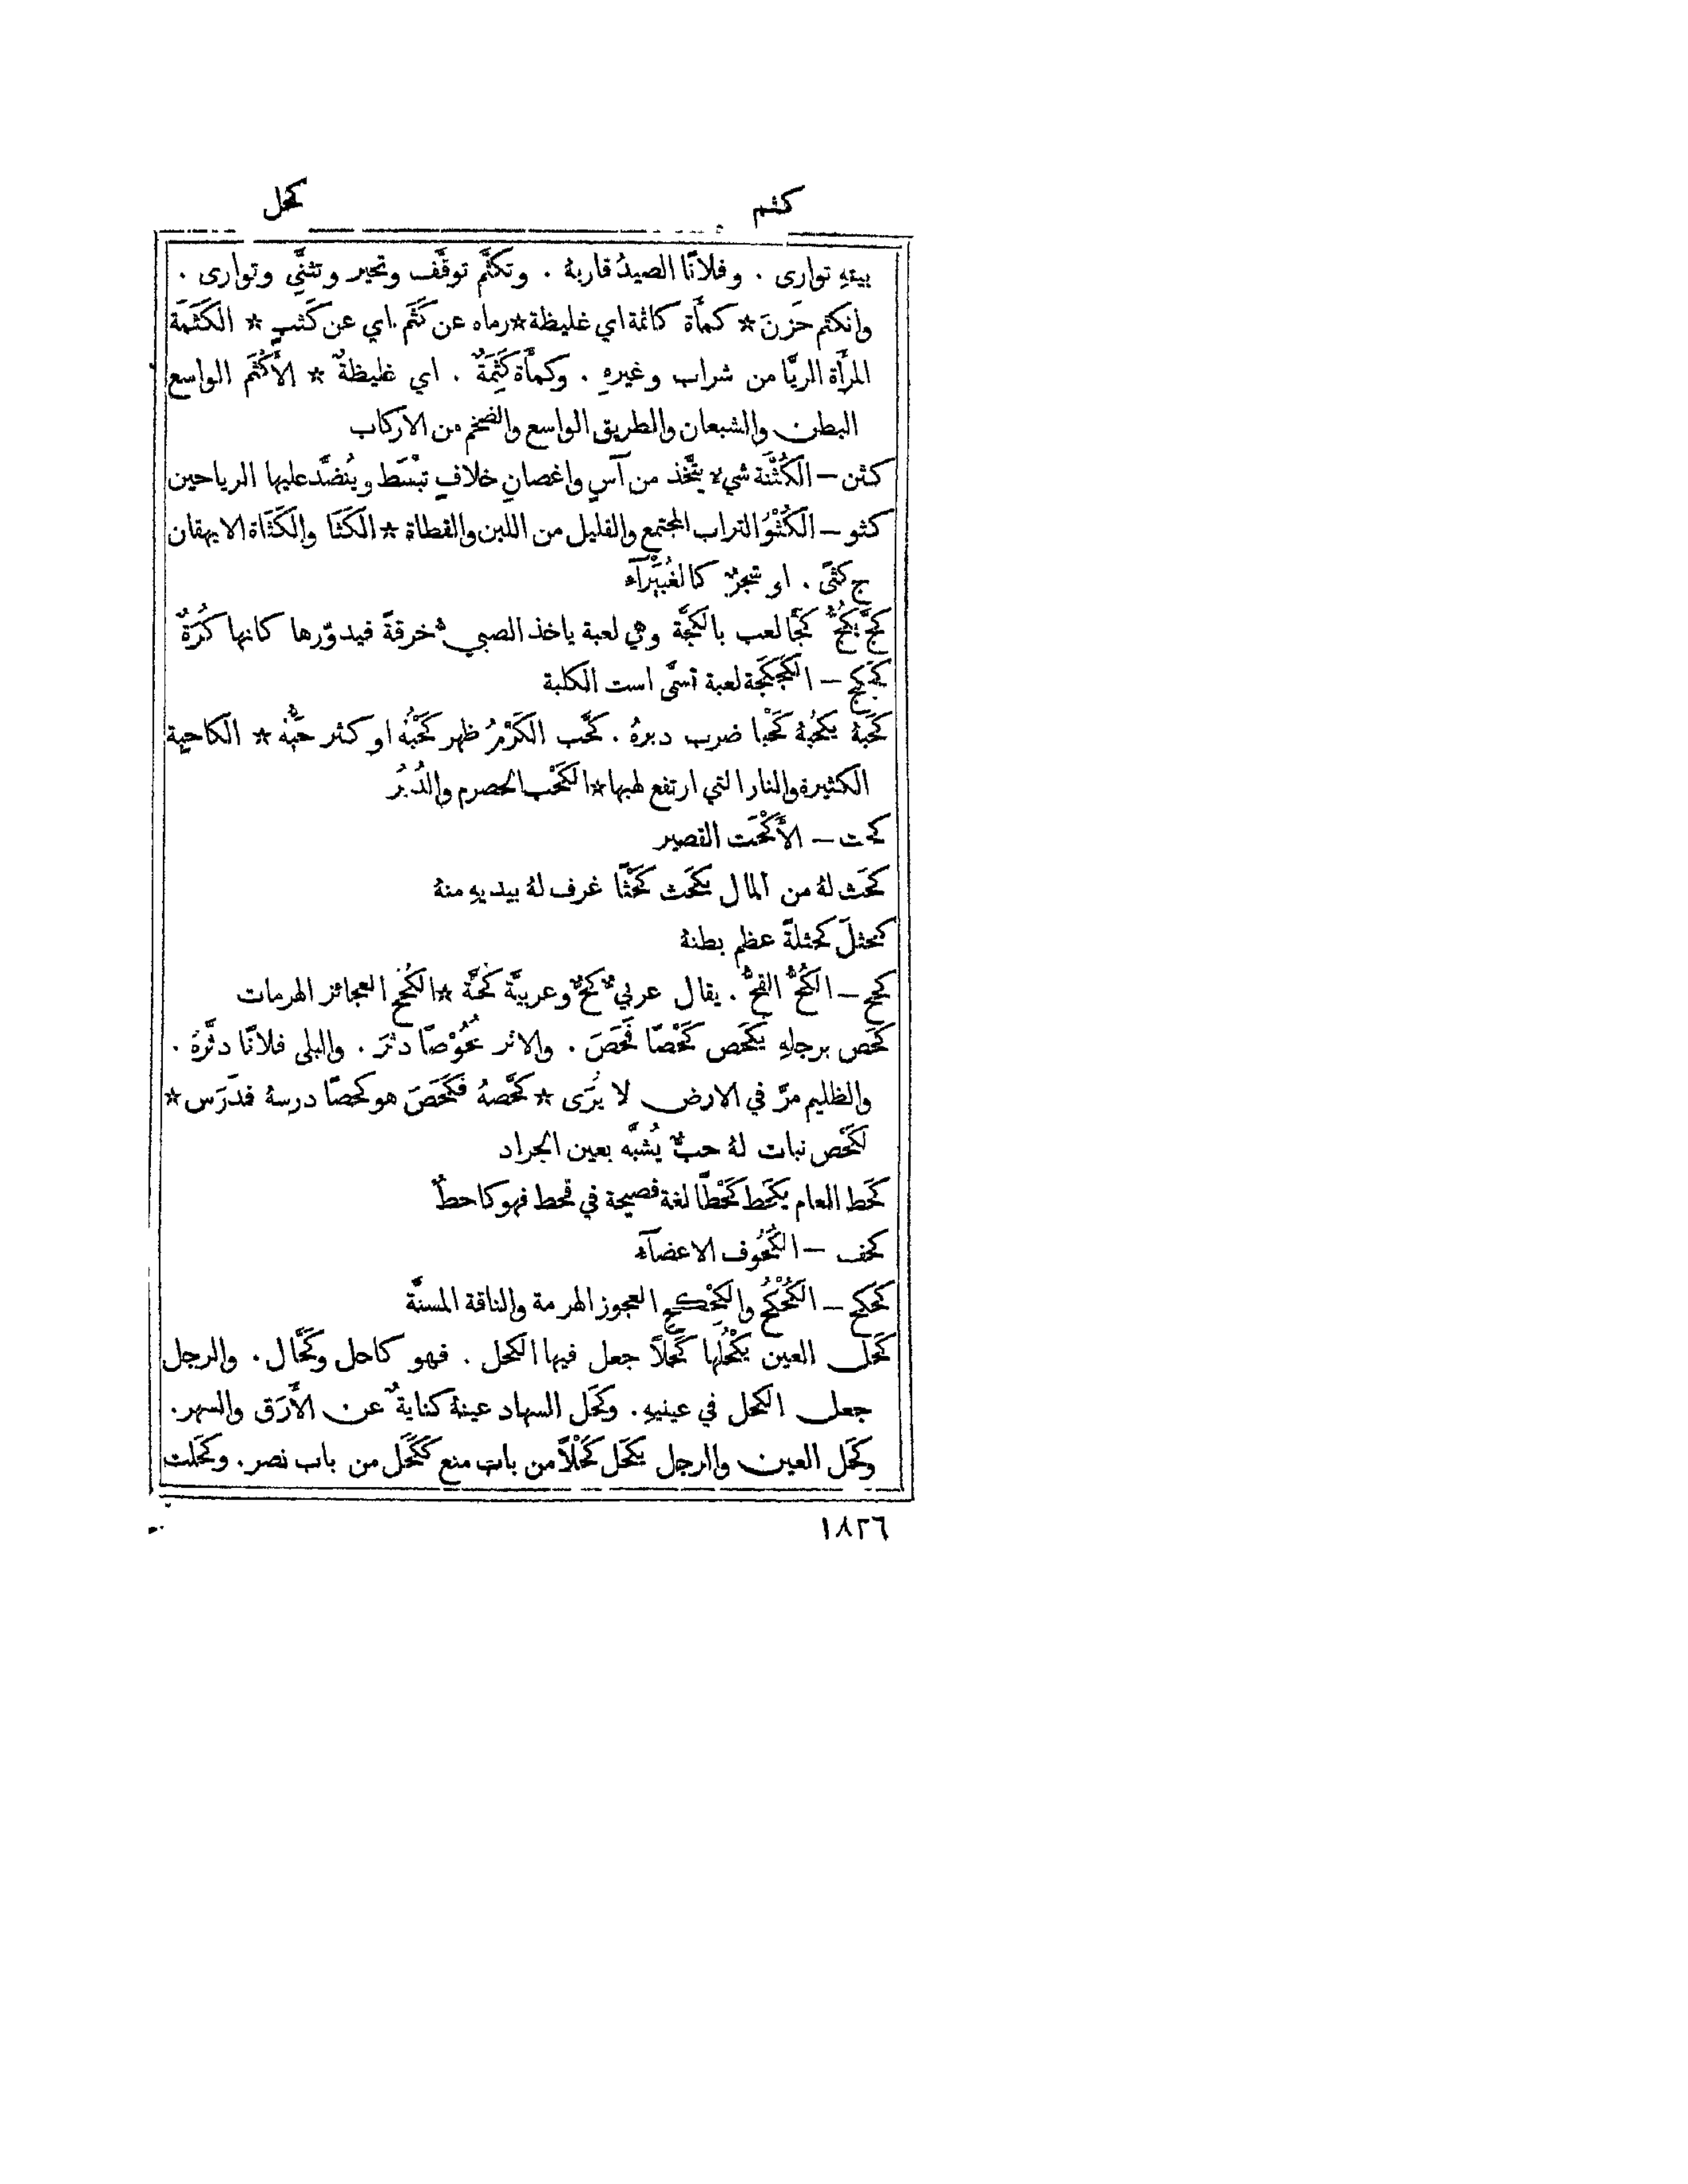 كثم
كحل
بيتهِ توارى . وفلانًا الصيدُ قاربهُ . وتكثَّم توقَّف وتحير وتثنَّى وتوارى .
وانكثم حَزِنَ * كمأَة كاثمة اي غليظة * رماه عن كَثَم . اي عن كَثَبٍ * الكَثَمَة
المرأَة الريَّا من شراب وغيرهِ . وكمأَة كَثِمَةٌ . اي غليظةٌ * الأَكْثَم الواسع
البطن والشبعان والطريق الواسع والضخم من الاركاب
كثن – الكُثْنَة شيء يتَّخذ من آسٍ واغصانِ خلافٍ تبْسَط ويُنضَّد عليها الرياحين
كثو – الكُثْوُ التراب المجتمع والقليل من اللبن والقطاة * الكَثَا والكَثَاة الايهقان
ج كثًى . او شجرٌ كالغُبَيْرَآء
كجَّ يكُجُّ كَجًّا لعب بالكُجَّة وهي لعبة ياخذ الصبي خرقةً فيدوّرها كانها كُرَةٌ
كجكج – الكَجْكَجَة لعبة تسمَّى است الكلبة
كَحَبَهُ يكحَبهُ كَحْبا ضرب دبرهُ . كحَّب الكَرْمُ ظهر كَحْبُه او كثر حَبُّه * الكاحبة
الكثيرة والنار التي ارتفع لهبها * الكَحْب الحصرم والدُبُر
كحت – الأَكْحَت القصير
كحَث لهُ من المال يكحَث كَحْثًا غرف لهُ بيديهِ منهُ
كحثلَ كحثلةً عظم بطنهُ
كحح – الكُحُّ القحُّ . يقال عربيٌّ كحٌّ وعربيَّة كُحَّة * الكُحُح العجائز الهرمات
كَحَص برجلهِ يكحَص كَحْصًا فَحَصَ . والاثر كُحُوْصًا دثرَ . والبلى فلانًا دثَّرهُ .
والظليم مرَّ في الارض لا يُرَى * كحَّصهُ فكَحَصَ هو كحصًا درسهُ فدَرَس *
لكَحْص نبات لهُ حبٌّ يُشبَّه بعين الجراد
كَحَط العام يكحَط كَحْطًا لغة فصيحة في قحط فهو كاحطٌ
كحف – الكُحُوف الاعضآء
كحكح – الكُحْكُحُ والكِحْكِح العجوز الهرمة والناقة المسنَّة
كَحَل العين يكْحُلها كَحْلاً جعل فيها الكحل . فهو كاحل وكَحَّال . والرجل
جعل الكحل في عينيهِ . وكحَل السهاد عينهُ كنايةٌ عن الأَرَق والسهر .
وكحَل العين والرجل يكحَل كَحْلاً من باب منع ككَحَل من باب نصر . وكحَلت
١٨٢٦